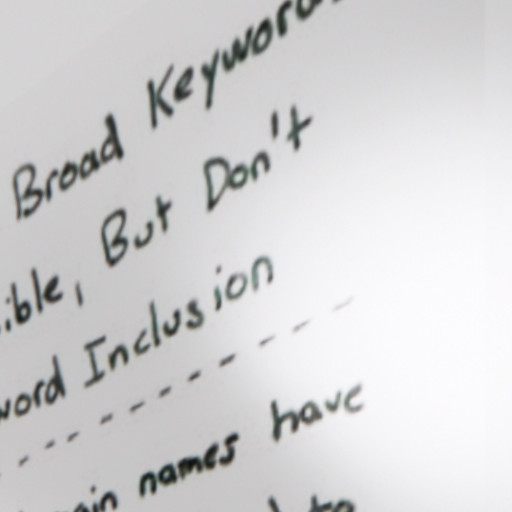 Broad Keyword
ible, But Don't
word Inclusion
names have
to